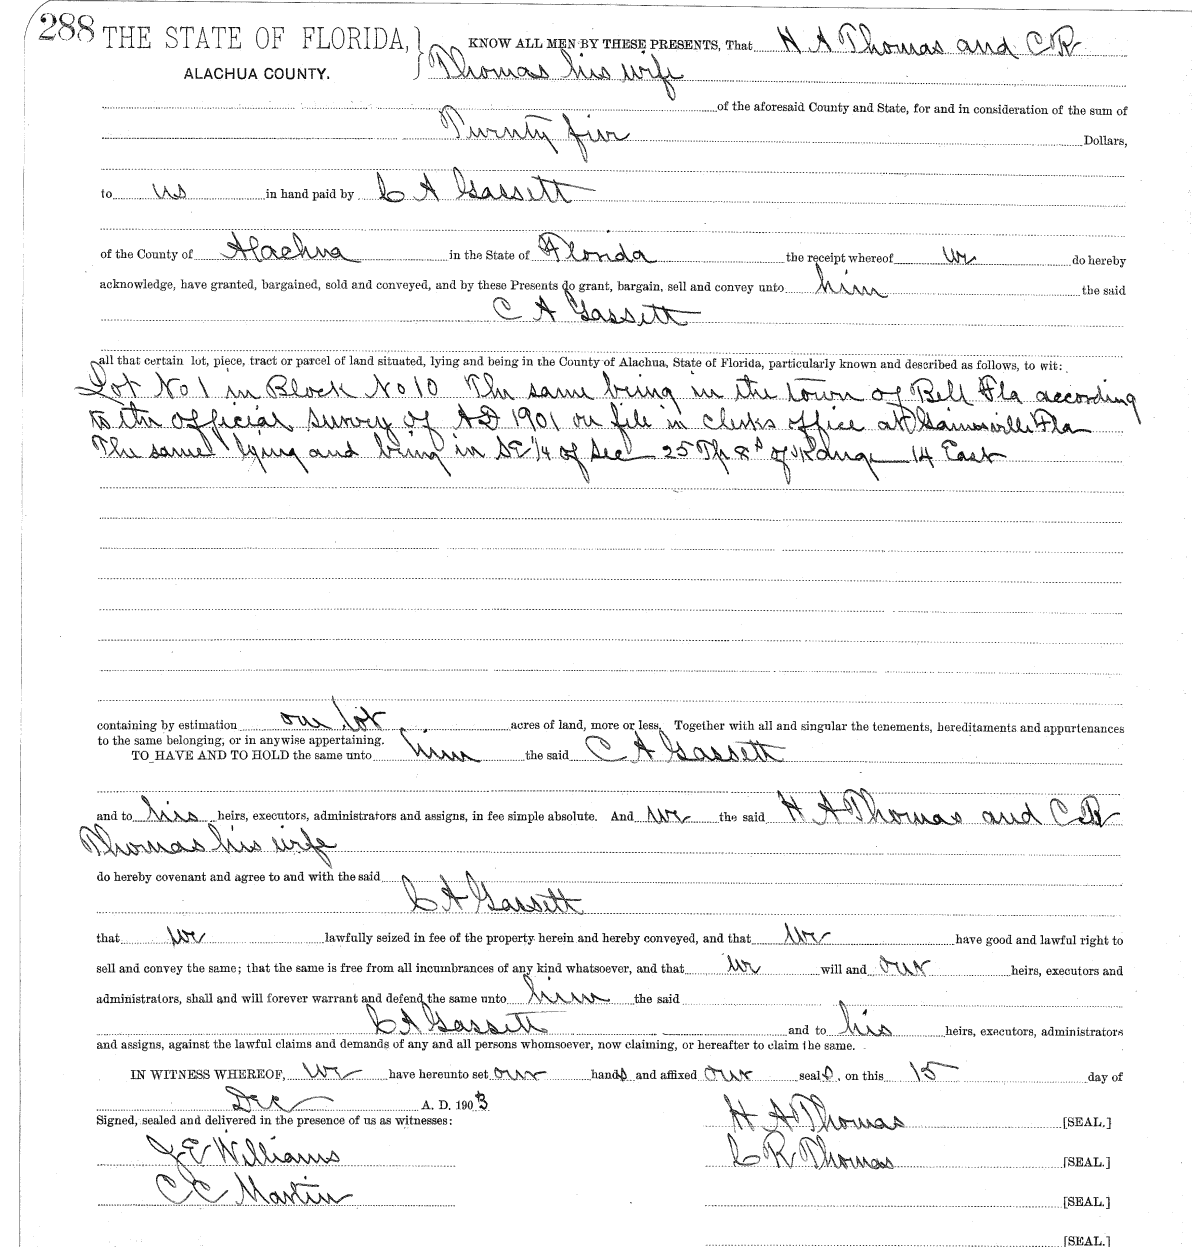 288 THE STATE OF FLORIDA, KNOW ALL MEN BY THESE PRESENTS, That H A Thomas and C R
ALACHUA COUNTY. Thomas his wife
of the aforesaid County and State, for and in consideration of the sum of
Twenty five Dollars,
to us in hand paid by C A Gassett
of the County of Alachua in the State of Florida the receipt whereof we do hereby
acknowledge, have granted, bargained, sold and conveyed, and by these Presents do grant, bargain, sell and convey unto him the said
C A Gassett
all that certain lot, piece, tract or parcel of land situated, lying and being in the County of Alachua, State of Florida, particularly known and described as follows, to wit:
Lot No 1 in Block No 10 The same being in the town of Bell Fla according
to the official survey of AD 1901 on file in clerks office at Gainesville Fla
The same lying and being in SE 1/4 of Sec 25 Tp 8 S of Range 14 East
containing by estimation one lot acres of land, more or less. Together with all and singular the tenements, hereditaments and appurtenances
to the same belonging, or in anywise appertaining.
TO HAVE AND TO HOLD the same unto him the said C A Gassett
and to his heirs, executors, administrators and assigns, in fee simple absolute. And we the said H A Thomas and C R
Thomas his wife
do hereby covenant and agree to and with the said
C A Gassett
that we lawfully seized in fee of the property herein and hereby conveyed, and that we have good and lawful right to
sell and convey the same; that the same is free from all incumbrances of any kind whatsoever, and that we will and our heirs, executors and
administrators, shall and will forever warrant and defend the same unto him the said
C A Gassett and to his heirs, executors, administrators
and assigns, against the lawful claims and demands of any and all persons whomsoever, now claiming, or hereafter to claim the same.
IN WITNESS WHEREOF, we have hereunto set our hands and affixed our seals, on this 15 day of
Dec A. D. 1903
Signed, sealed and delivered in the presence of us as witnesses: H A Thomas [SEAL.]
J E Williams C R Thomas [SEAL.]
C C Martin [SEAL.]
[SEAL.]